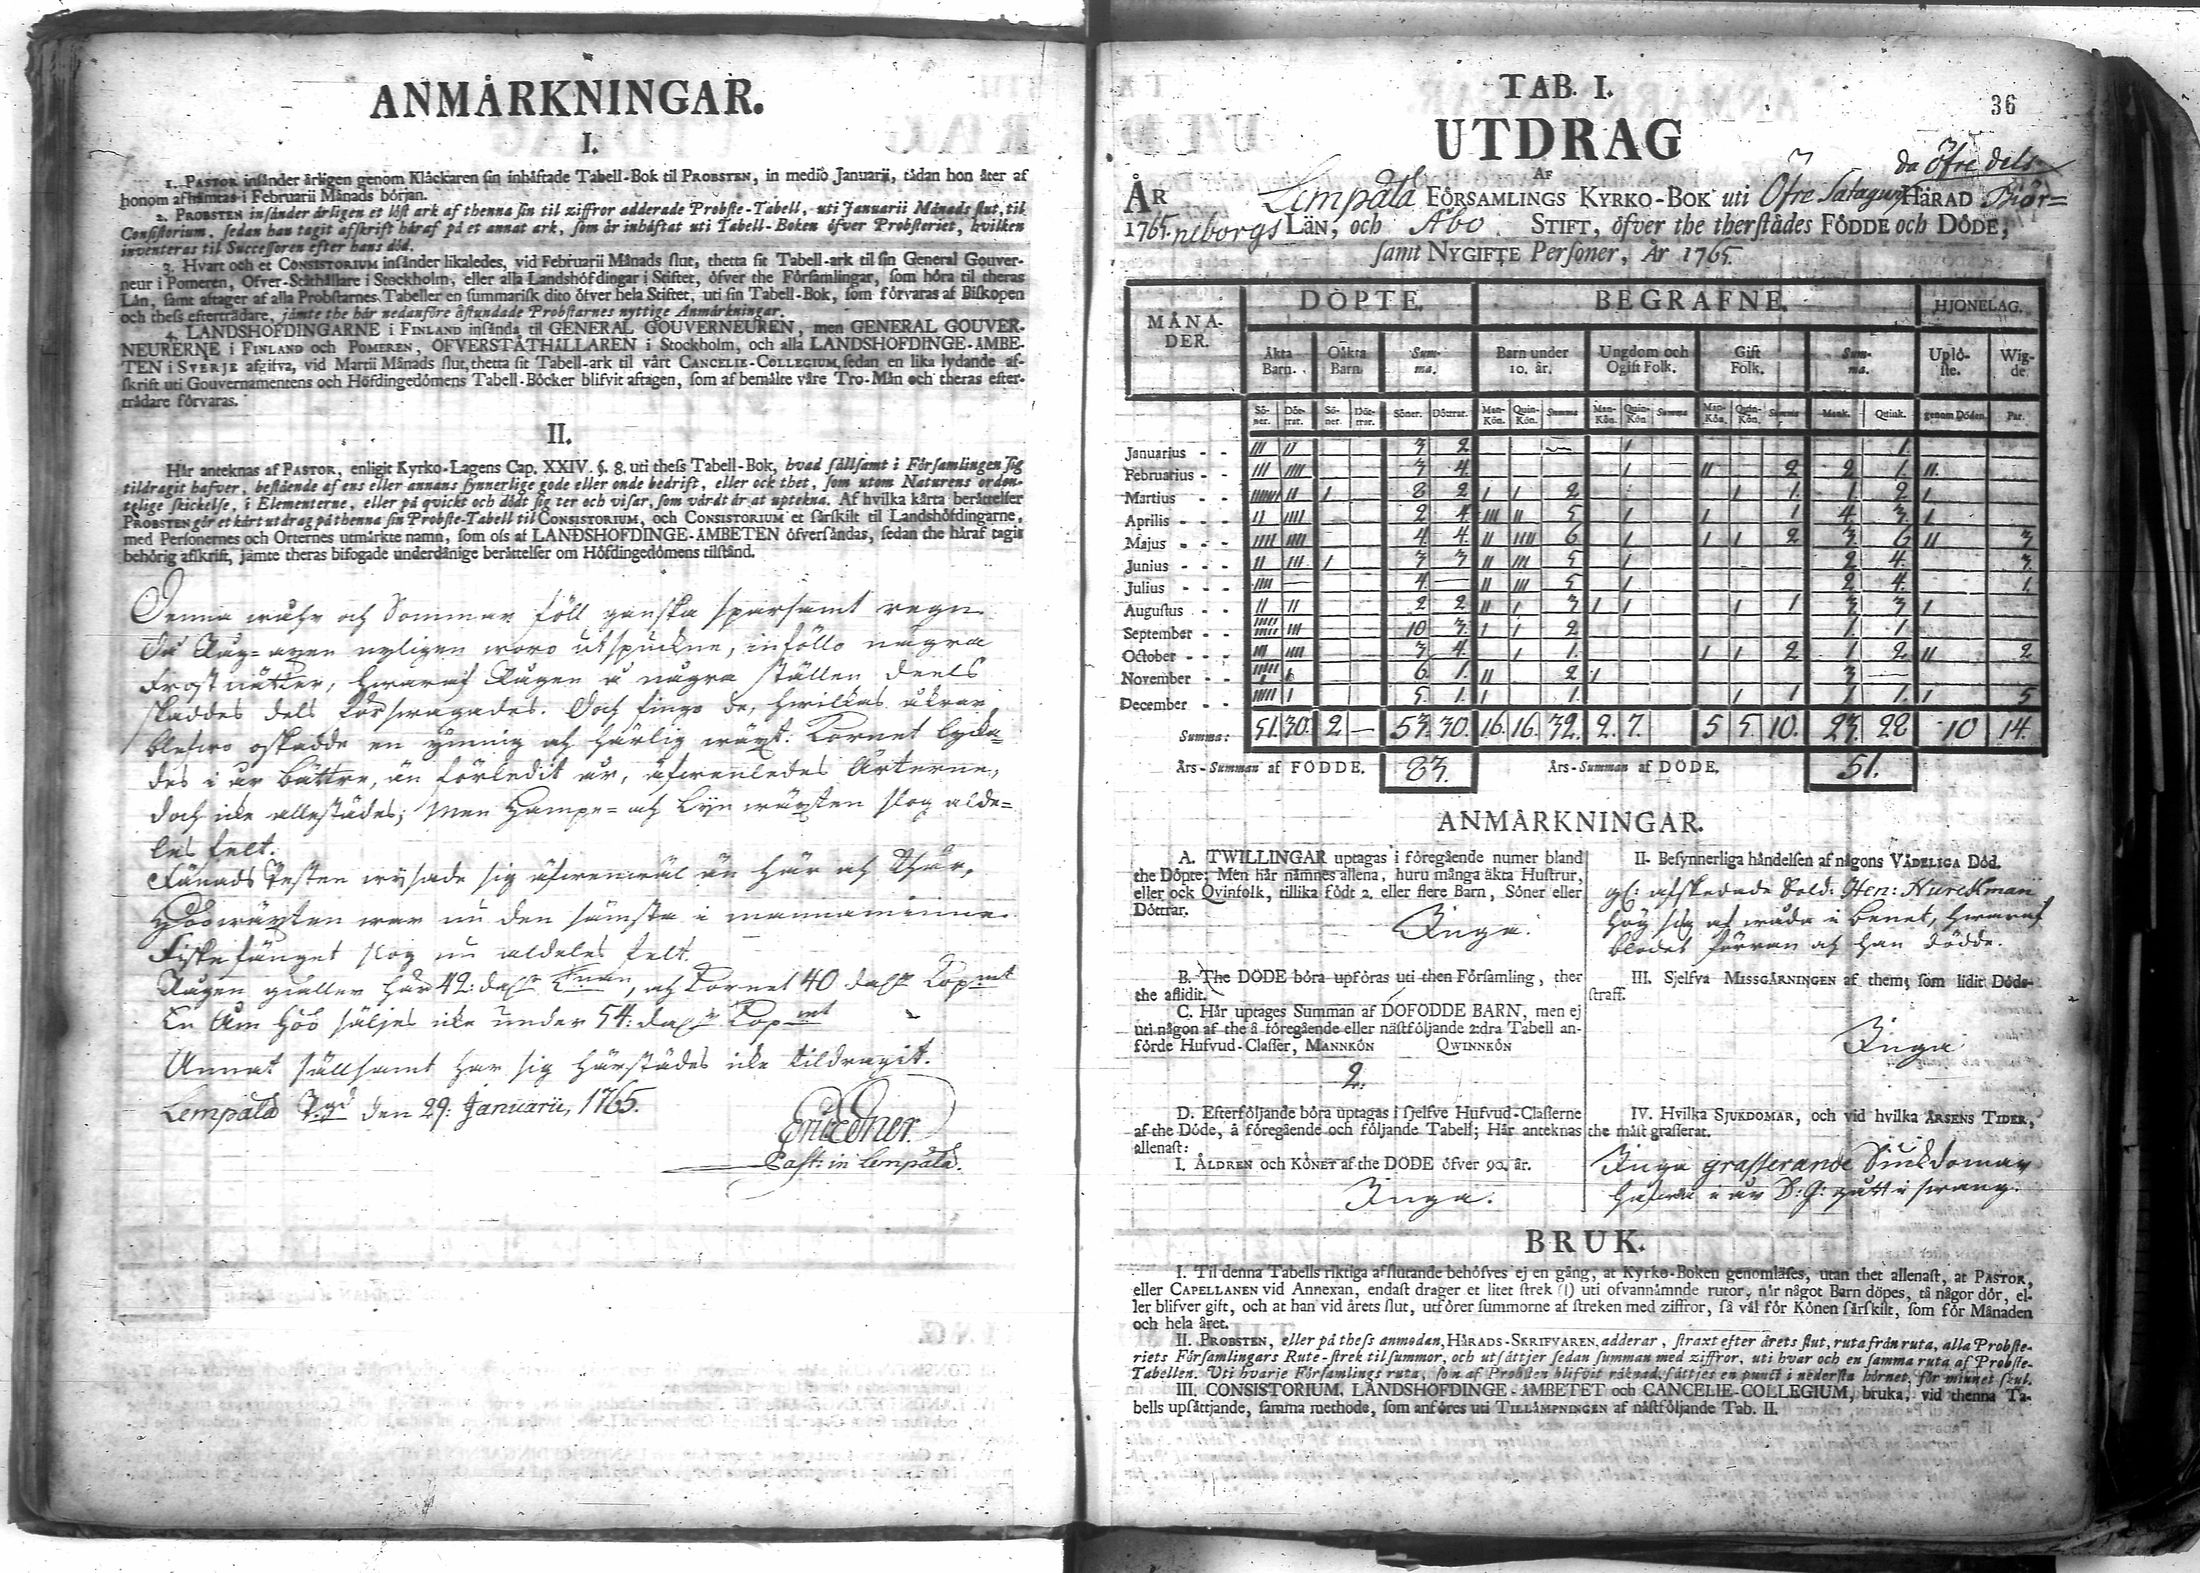 ANMÅRKNINGAR.
I.
1. PASTOR insånder årligen genom Klåckaren sin inhåftade Tabell-Bok til PROBSTEN, in medio Januarii, tådan hon åter af
honom afhåmtas i Februarii Månads början.
2. PROBSTEN insånder årligen et löst ark af thenna sin til ziffror adderade Probste-Tabell, uti Januarii Månads slut, til
Consistorium, sedan han tagit afskrift håraf på et annat ark, som år inhåftat uti Tabell-Boken öfver Probsteriet, hvilken
inventeras til Successoren efter hans död.
3. Hvart och et CONSISTORIUM insånder likaledes, vid Februarii Månads slut, thetta sit Tabell-ark til sin General Gouver-
neur i Pomeren, Ofver-Ståthållare i Stockholm, eller alla Landshöfdingar i Stiftet, öfver the Församlingar, som höra til theras
Lån, samt aftager af alla Probstarnes Tabeller en summarisk dito öfver hela Stiftet, uti sin Tabell-Bok, som förvaras af Biskopen
och thess eftertrådare, jåmte the hår nedanföre åstundade Probstarnes nyttige Anmårkningar.
4. LANDSHOFDINGARNE i FINLAND insånda til GENERAL GOUVERNEUREN, men GENERAL GOUVER-
NEURERNE i FINLAND och POMEREN, OFVERSTÅTHÅLLAREN i Stockholm, och alla LANDSHOFDINGE-ÅMBE-
TEN i SVERJE afgifva, vid Martii Månads slut, thetta sit Tabell-ark til vårt CANCELIE-COLLEGIUM, sedan en lika lydande af-
skrift uti Gouvernamentens och Höfdingedömens Tabell-Böcker blifvit aftagen, som af bemålte våre Tro-Mån och theras efter-
trådare förvaras.
II.
Hår anteknas af PASTOR, enligit Kyrko-Lagens Cap. XXIV. §. 8. uti thess Tabell-Bok, hvad sållsamt i Församlingen sig
tildragit hafver, bestående af ens eller annans synnerlige gode eller onde bedrift, eller ock thet, som utom Naturens orden-
telige skickelse, i Elementerne, eller på qvickt och dödt sig ter och visar, som vårdt år at uptekna. Af hvilka kårta beråttelser
PROBSTEN gör et kårt utdrag på thenna sin Probste-Tabell til CONSISTORIUM, och CONSISTORIUM et sårskilt til Landshöfdingarne,
med Personernes och Orternes utmårkte namn, som oss af LANDSHOFDINGE-ÅMBETEN öfversåndas, sedan the håraf tagit
behörig afskrift, jåmte theras bifogade underdånige beråttelser om Höfdingedömens tilstånd.
Denna wåhr och Sommar föll ganska sparsamt regn.
Då Råg-axen nyligen woro utspuckne, inföllo några
frostnätter, hwaraf Rågen å några ställen deels
skaddes dels förswagades. Doch fingo de, hwilkas åkrar
blefwo oskadde en ymnig och härlig wäxt. Kornet lycka-
des i år bättre, än förledit år, äfwenledes Ärterne,
doch icke allestädes; men Hampe- och Lijn wäxten slog alde-
les felt.
Fänads Pesten wijsade sig äfwenwäl än här och där,
Höö wäxten war nu den sämsta i mannaminne.
Fiskefänget slog nu aldeles felt.
Rågen gäller här 42: dahr Kmnt, och Kornet 40 dahr Kopmt
En Åm Höö säljes icke under 54: dahr Kopmt
Annat sällsamt har sig härstädes icke tildragit.
Lempälä Pgd den 29: Januarii, 1765.
Past: in Lempälä.
TAB. I.
36
UTDRAG
AF
da öfre dels
ÅR Lempälä FÖRSAMLINGS KYRKO-BOK uti Öfre Satagun HÅRAD Biör=
1765. neborgs LÅN, och Åbo STIFT, öfver the therstådes FÖDDE och DÖDE,
samt NYGIFTE Personer, År 1765.
MÅNA-DER. DÖPTE. BEGRAFNE. HJONELAG.
Åkta Barn. Oåkta Barn. Sum-ma. Barn under 10. år. Ungdom och Ogift Folk. Gift Folk. Sum-ma. Uplö-ste. Wig-de.
Sö-ner. Döt-trar. Sö-ner. Döt-trar. Söner. Döttrar. Man-Kön. Quin-Kön. Summa Man-Kön. Quin-Kön. Summa Man-Kön. Quin-Kön. Summa Mank. Quink. genom Döden. Par.
Januarius - - III II 3 2 — I 1.
Februarius - - III IIII 3 4. I II 2 2 1. II.
Martius - - IIIIIII II I 8 2 I I 2 I 1. 1. 2 I
Aprilis - - - II IIII 2 4. III II 5 I I 1 4. 3. I
Majus - - - IIII IIII 4 4. II IIII 6 I I I 2 3. 6 II 3
Junius - - - II III I 3 3 II III 5 I 2 4. 3.
Julius - - - IIII — 4. — II III 5 I 2 4. 1.
Augustus - - II II 2 2 II I 3 I I I 1 3 3 I
September - - IIIII IIIII III 10 3. I I 2 1. 1.
October - - - III IIII 3 4. I 1. I I 2 1 2 II 2
November - - IIIII I I 6 1. II 2 I 3 —
December - - IIIII I 5. 1. I 1. I 1 1. 1. I 5
Summa: 51. 30. 2 — 53. 30. 16. 16. 32. 2. 7. 5 5. 10. 23. 28 10 14.
Års-Summan af FÖDDE. 83. Års-Summan af DÖDE. 51.
ANMÅRKNINGAR.
A. TWILLINGAR uptagas i föregående numer bland
the Döpte; Men hår nåmnes allena, huru många åkta Hustrur,
eller ock Qvinfolk, tillika födt 2. eller flere Barn, Söner eller
Döttrar.
Inga.
B. The DÖDE böra upföras uti then Församling, ther
the aflidit.
C. Hår uptages Summan af DÖFÖDDE BARN, men ej
uti någon af the å föregående eller nåstföljande 2:dra Tabell an-
förde Hufvud-Classer, MANNKÖN QWINNKÖN
2.
D. Efterföljande böra uptagas i sjelfve Hufvud-Classerne
af the Döde, å föregående och följande Tabell; Hår anteknas
allenast:
I. ÅLDREN och KÖNET af the DÖDE öfver 90. år.
Inga.
II. Besynnerliga håndelsen af någons VÅDELIGA Död.
gl: afskedade Sold: Hen: Nurckman
hög sig af wåda i benet, hwaraf
blodet förran och han dödde.
III. Sjelfva MISSGÅRNINGEN af them, som lidit Döds-
straff.
Inga
IV. Hvilka SJUKDOMAR, och vid hvilka ÅRSENS TIDER,
the måst grasserat.
Inga grasserande Siukdomar
hafwa i år D: G: gått i swang.
BRUK.
I. Til denna Tabells riktiga afslutande behöfves ej en gång, at Kyrko-Boken genomlåses, utan thet allenast, at PASTOR,
eller CAPELLANEN vid Annexan, endast drager et litet strek (I) uti ofvannåmnde rutor, når något Barn döpes, eå någor dör, el-
ler blifver gift, och at han vid årets slut, utförer summorne af streken med ziffror, så vål för Könen sårskilt, som för Månaden
och hela året.
II. PROBSTEN, eller på thess anmodan, HÅRADS-SKRIFVAREN, adderar, straxt efter årets slut, ruta från ruta, alla Probste-
riets Församlingars Rute-strek til summor, och utsåttjer sedan summan med ziffror, uti hvar och en samma ruta af Probste-
Tabellen. Uti hvarje Församlings ruta, som af Probsten blifvit råknad, såttjes en punct i nedersta hörnet, för minnet skul.
III. CONSISTORIUM, LANDSHOFDINGE-ÅMBETET och CANCELIE-COLLEGIUM, bruka, vid thenna Ta-
bells upsåttjande, samma methode, som anföres uti TILLÅMPNINGEN af nåstföljande Tab. II.